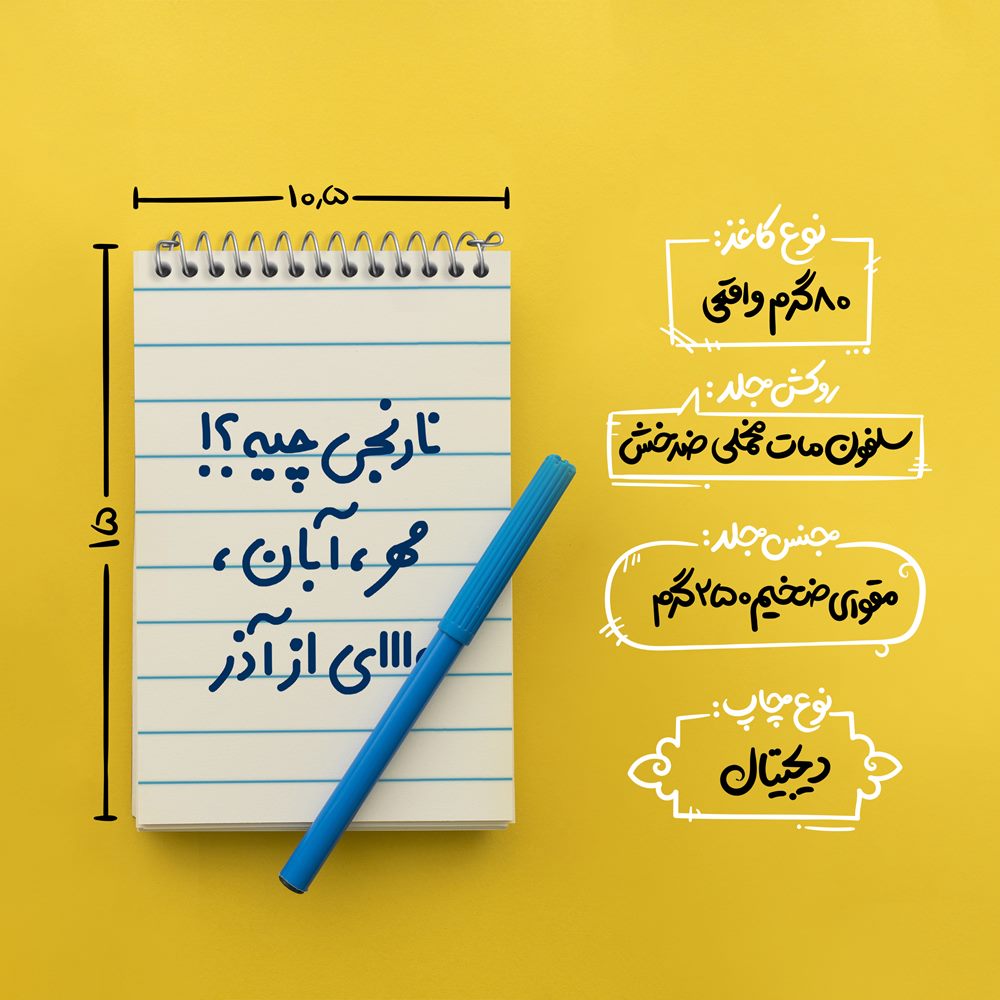 ۱۰٫۵
۱۵
نارنجی چیه؟!
مهر، آبان،
وااای از آذر
نوع کاغذ:
۸۰ گرم واقعی
روکش جلد:
سلفون مات مخملی ضدخش
جنس جلد:
مقوای ضخیم ۲۵۰ گرم
نوع چاپ:
دیجیتال